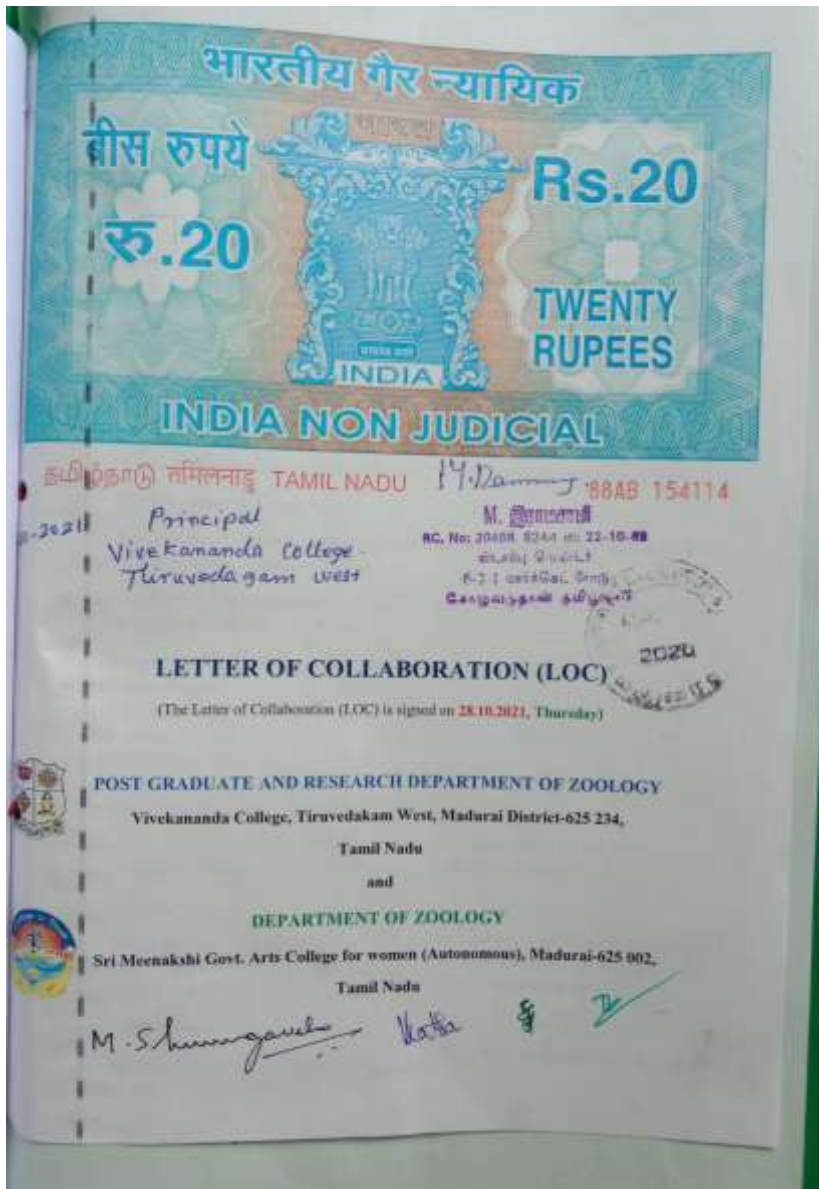 भारतीय गैर न्यायिक
भारत
बीस रुपये
Rs.20
रु.20
TWENTY
RUPEES
सत्यमेव जयते
INDIA
INDIA NON JUDICIAL
தமிழ்நாடு तमिलनाडु TAMIL NADU
88AB 154114
-2021
Principal
Vivekananda College
Thiruvedagam West
M. இராமசாமி
RC. No: 22-10-88
சோழவந்தான்
2020
LETTER OF COLLABORATION (LOC)
(The Letter of Collaboration (LOC) is signed on 28.10.2021, Thursday)
POST GRADUATE AND RESEARCH DEPARTMENT OF ZOOLOGY
Vivekananda College, Tiruvedakam West, Madurai District-625 234,
Tamil Nadu
and
DEPARTMENT OF ZOOLOGY
Sri Meenakshi Govt. Arts College for women (Autonomous), Madurai-625 002,
Tamil Nadu
M. Shunmugavelu